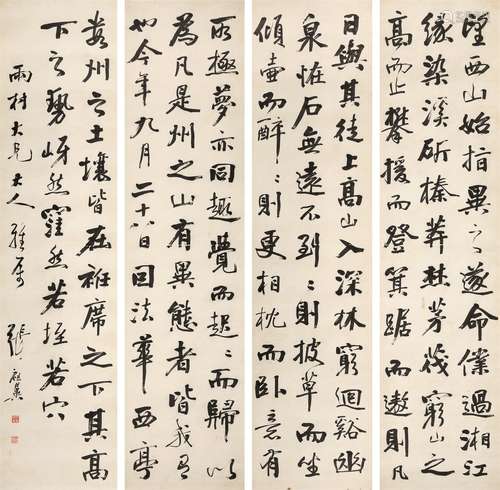 望西山始指異之〻遂命僕過湘江
緣染溪斫榛莽焚茅茷窮山之
高而止攀援而登箕踞而遨則凡
日與其徒上高山入深林窮迴谿幽
泉怪石無遠不到〻則披草而坐
傾壺而醉〻則更相枕而臥意有
所極夢亦同趣覺而起〻而歸以
為凡是州之山有異態者皆我有
也今年九月二十八日因法華西亭
數州之土壤皆在衽席之下其高
下之勢岈然窪然若垤若穴
雨村大兄大人雅屬
張啟